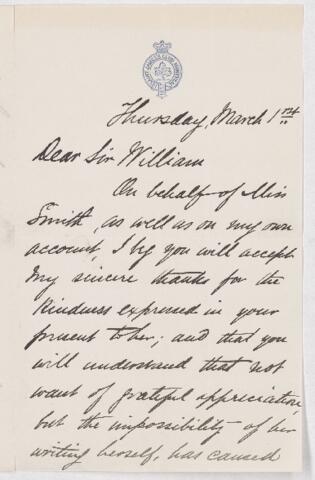 Thursday, March 1st
Dear Sir William
On behalf of Miss
Smith, as well as on my own
account, I beg you will accept
my sincere thanks for the
kindness expressed in your
present to her; and that you
will understand that not
want of grateful appreciation,
but the impossibility of her
writing herself, has caused